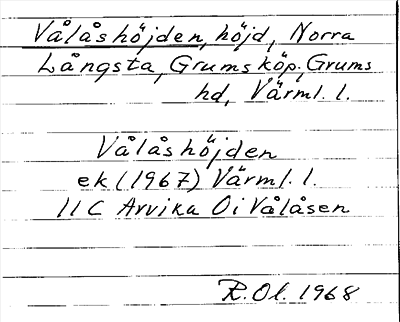 Vålåshöjden, höjd, Norra
Långsta, Grums köp. Grums
hd, Värml. l.
Vålåshöjden
ek (1967) Värml. l.
11C Arvika Öi Vålåsen
R. Ol. 1968